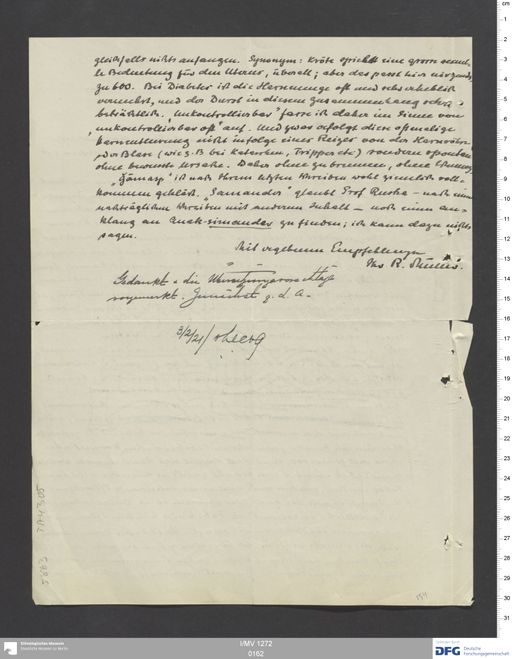 gleichfalls nichts anfangen. Synonym: Kröte spielt eine grosse sexuel-
le Bedeutung für den Uterus, überall; aber das passt hier nirgends
zu 600. Bei Diabetes ist die Harnmenge oft und sehr erheblich
vermehrt, und der Durst in diesem Zusammenhang sehr
beträchtlich. "Unkontrollierbar" fasse ich daher im Sinne von
"unkontrollierbar oft" auf. Und zwar erfolgt diese oftmalige
Harnentleerung nicht infolge eines Reizes von der Harnröhre
oder Blase (wie z.B. bei Katarrhen, Tripper etc) sondern
ohne bewusste Ursache. Daher ohne zu brennen, ohne
"Gāmasp" ist nach Ihrem letzten Schreiben wohl ziemlich voll-
kommen geklärt. "Samandar" glaubt Prof Ruska – nach einem
nachträglichen Schreiben mit anderem Inhalt – noch einen An-
klang an simandar zu finden; ich kann dazu nichts
sagen.
Mit ergebenen Empfehlungen
Ihr R.
Gedankt u. die
vorgemerkt. Zunächst z. d. A.
3/2/21
5663 TA 4305
154
Ethnologisches Museum
Staatliche Museen zu Berlin
I/MV 1272
0162
DFG Deutsche
Forschungsgemeinschaft